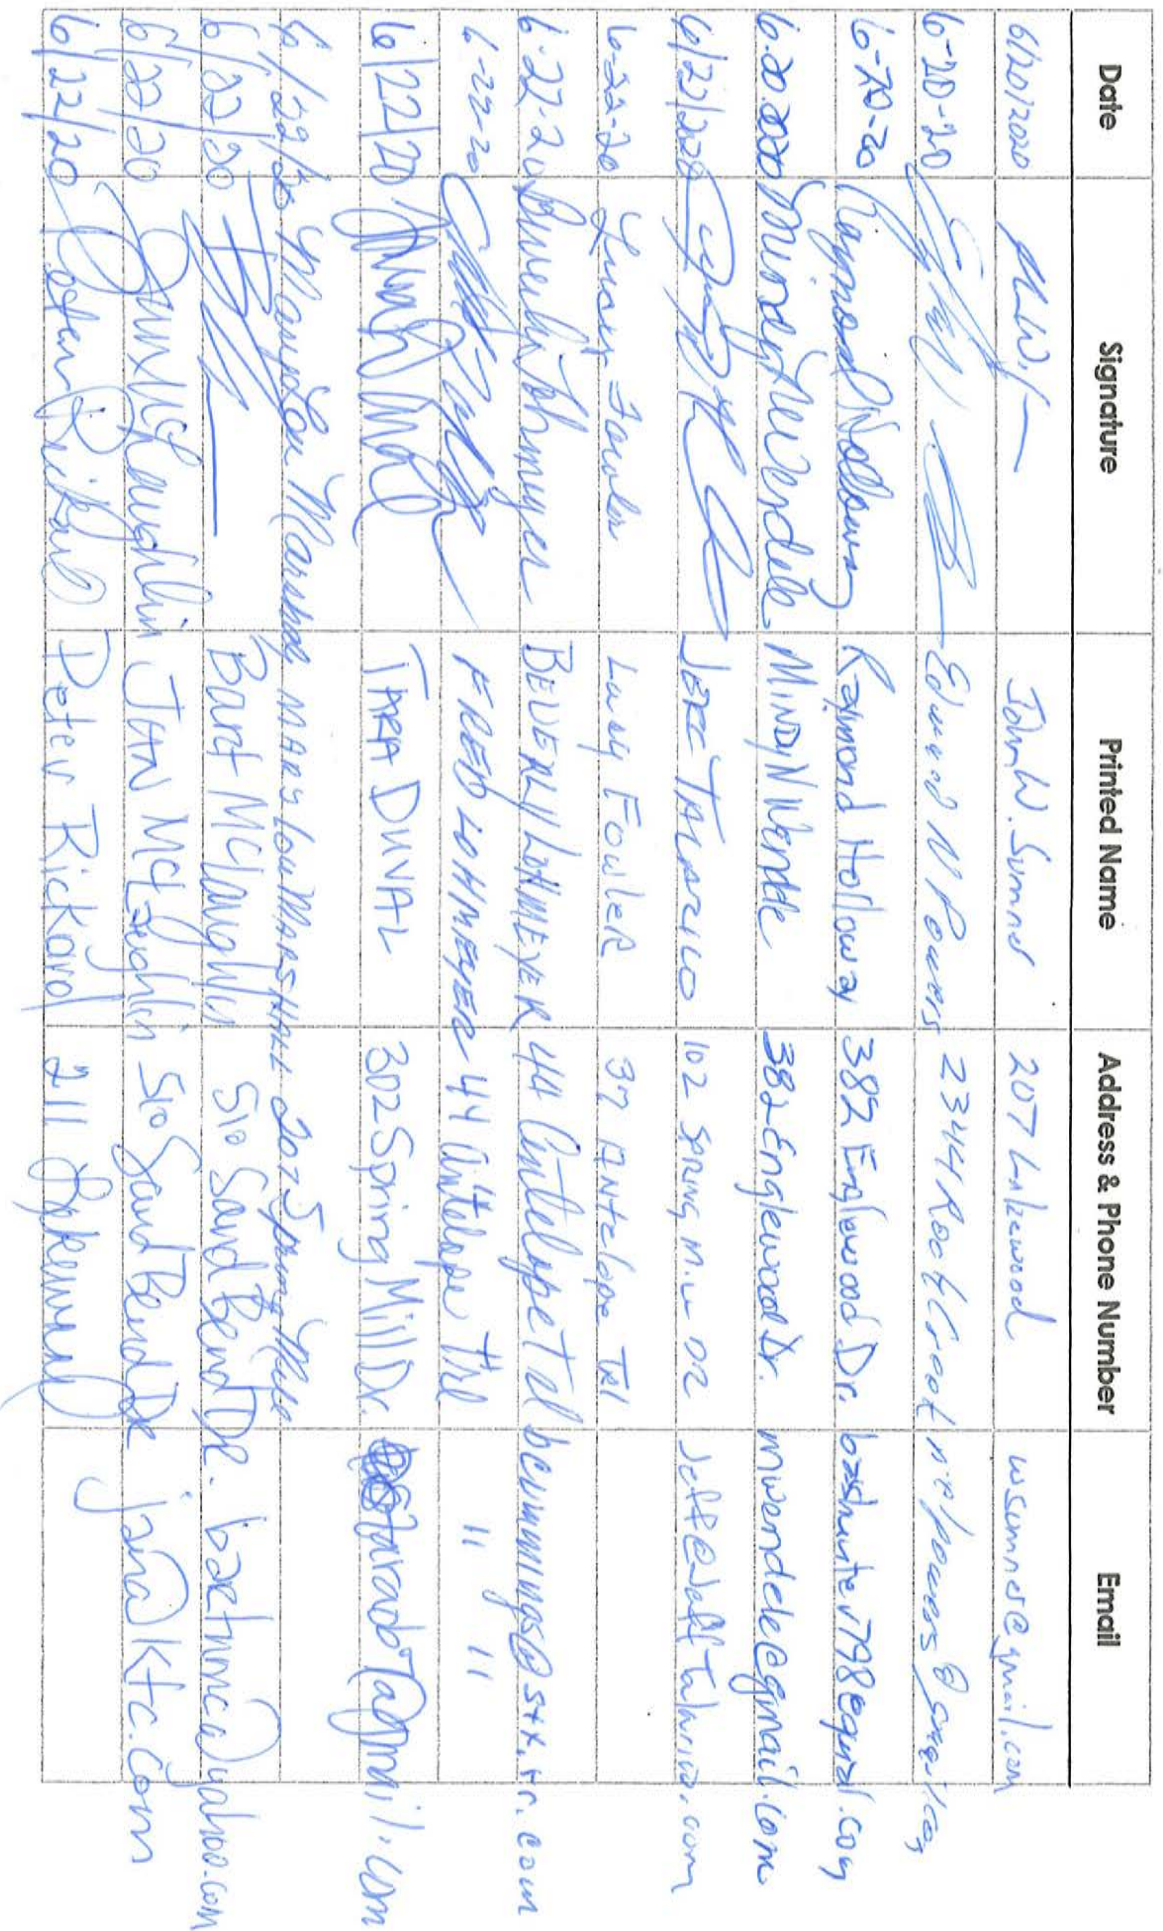 Date Signature Printed Name Address & Phone Number Email
6/20/2020 John W. Sumner 207 Lakewood wsumner@gmail.com
6-20-20 Edward N Powers 2344 Rock Creek
6-20-20 Raymond Holloway Raymond Holloway 382 Englewood Dr.
6-20-2020 Mindy N Wendele Mindy N Wendele 382 Englewood Dr. mwendele@gmail.com
6/22/2020 Jeff Talarico 102 Spring Mill Dr
6-22-20 Lucy Fowler Lucy Fowler 37 Antelope Trl
6-22-20 Beverly Lohmeyer Beverly Lohmeyer 44 Antelope Trl
6-22-20 Fred Lohmeyer 44 Antelope Trl " "
6/22/20 Tara Duval 302 Spring Mill Dr.
6/22/20 Mary Lou Marshall Mary Lou Marshall 207 Spring Mill
6/22/20 Bart McLaughlin 510 Sand Bend Dr.
6/22/20 Jan McLaughlin Jan McLaughlin 510 Sand Bend Dr jan@ktc.com
6/22/20 Peter Rickard Peter Rickard 211